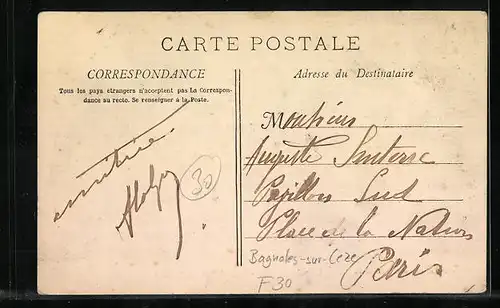 CARTE POSTALE
CORRESPONDANCE
Tous les pays étrangers n'acceptent pas La Correspon-
dance au recto. Se renseigner à la Poste.
30
Adresse du Destinataire
Monsieur
Auguste
Pavillon Sud
Place de la Nation
Paris
Bagnoles-sur-Cèze
F30